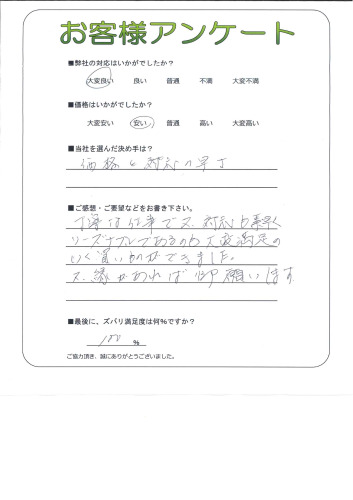 お客様アンケート
■弊社の対応はいかがでしたか？
大変良い 良い 普通 不満 大変不満
■価格はいかがでしたか？
大変安い 安い 普通 高い 大変高い
■当社を選んだ決め手は？
価格と対応の早さ
■ご感想・ご要望などをお書き下さい。
丁寧な仕事で又、対応も素早く
リーズナブルであるのも大変満足の
いく買い物ができました。
又、縁があれば御願いします
■最後に、ズバリ満足度は何%ですか？
100 %
ご協力頂き、誠にありがとうございました。